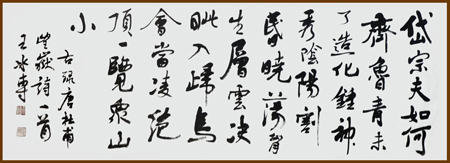 岱宗夫如何
齊魯青未
了造化鍾神
秀陰陽割
昏曉蕩胷
生層雲決
眦入歸鳥
會當凌絕
頂一覽衆山
小
右錄唐杜甫
望嶽詩一首